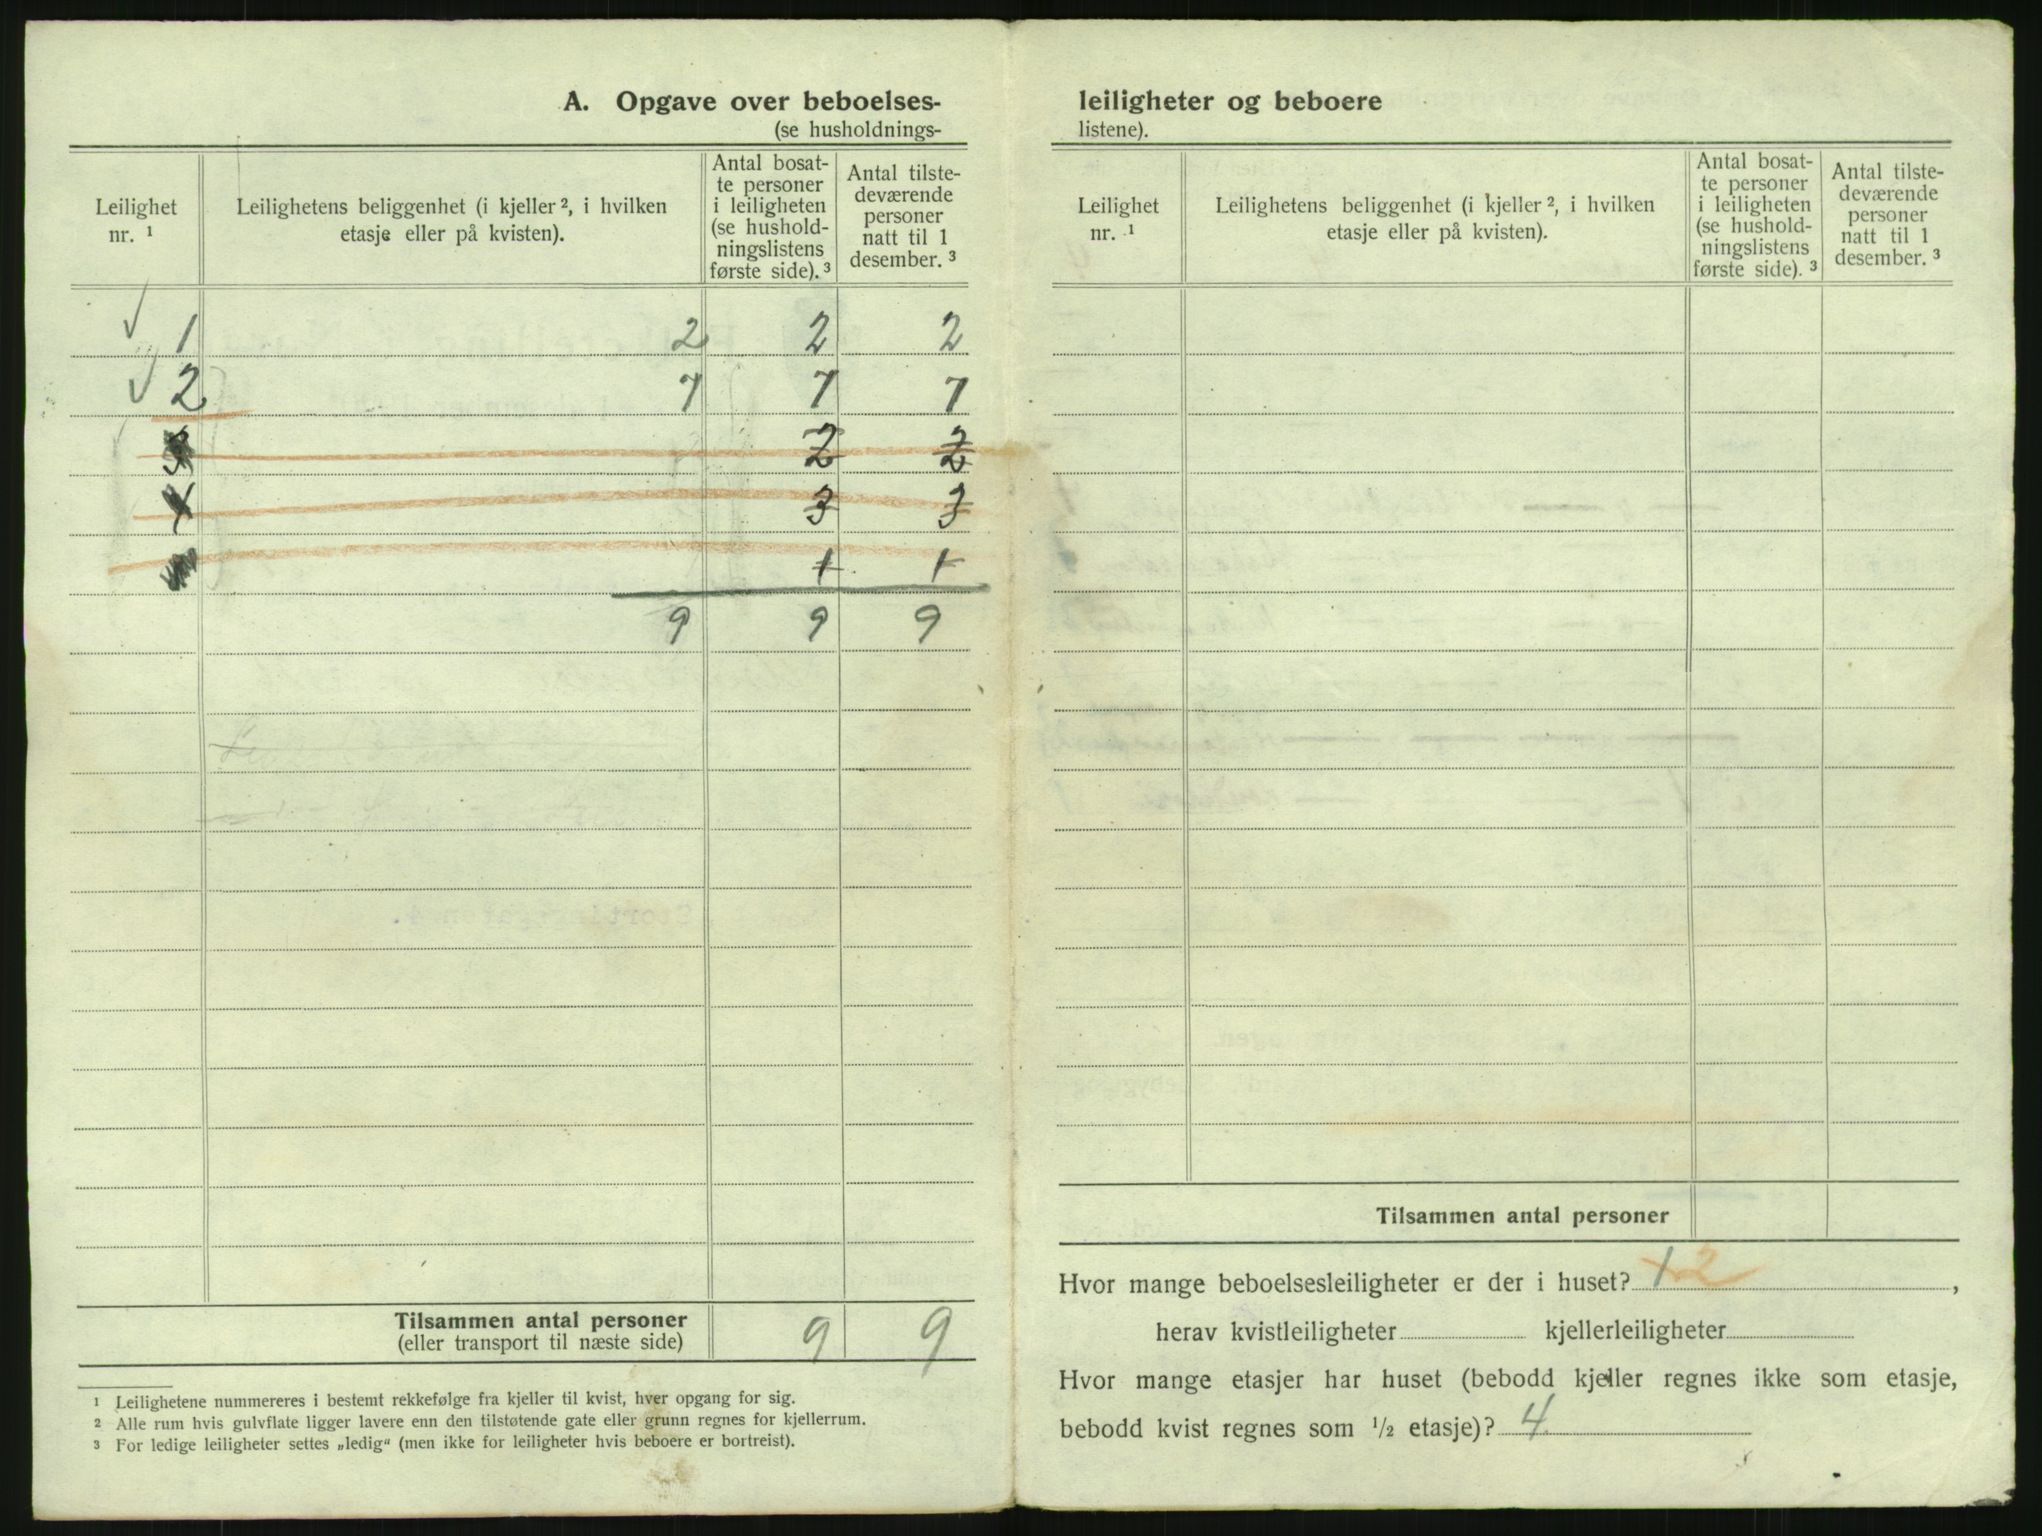 A. Opgave over beboelses-
(se husholdnings-
Leilighet nr. ¹
Leilighetens beliggenhet (i kjeller ², i hvilken etasje eller på kvisten).
Antal bosat-
te personer
i leiligheten
(se hushold-
ningslistens
første side). ³
Antal tilste-
deværende
personer
natt til 1
desember. ³
1 2 2 2
2 7 7 7
3 2 2
4 3 3
1 1
9 9 9
Tilsammen antal personer 9 9
(eller transport til næste side)
¹ Leilighetene nummereres i bestemt rekkefølge fra kjeller til kvist, hver opgang for sig.
² Alle rum hvis gulvflate ligger lavere enn den tilstøtende gate eller grunn regnes for kjellerrum.
³ For ledige leiligheter settes „ledig“ (men ikke for leiligheter hvis beboere er bortreist).
leiligheter og beboere
listene).
Leilighet nr. ¹
Leilighetens beliggenhet (i kjeller ², i hvilken etasje eller på kvisten).
Antal bosat-
te personer
i leiligheten
(se hushold-
ningslistens
første side). ³
Antal tilste-
deværende
personer
natt til 1
desember. ³
Tilsammen antal personer
Hvor mange beboelsesleiligheter er der i huset? 1 2,
herav kvistleiligheter kjellerleiligheter
Hvor mange etasjer har huset (bebodd kjeller regnes ikke som etasje,
bebodd kvist regnes som ½ etasje)? 4